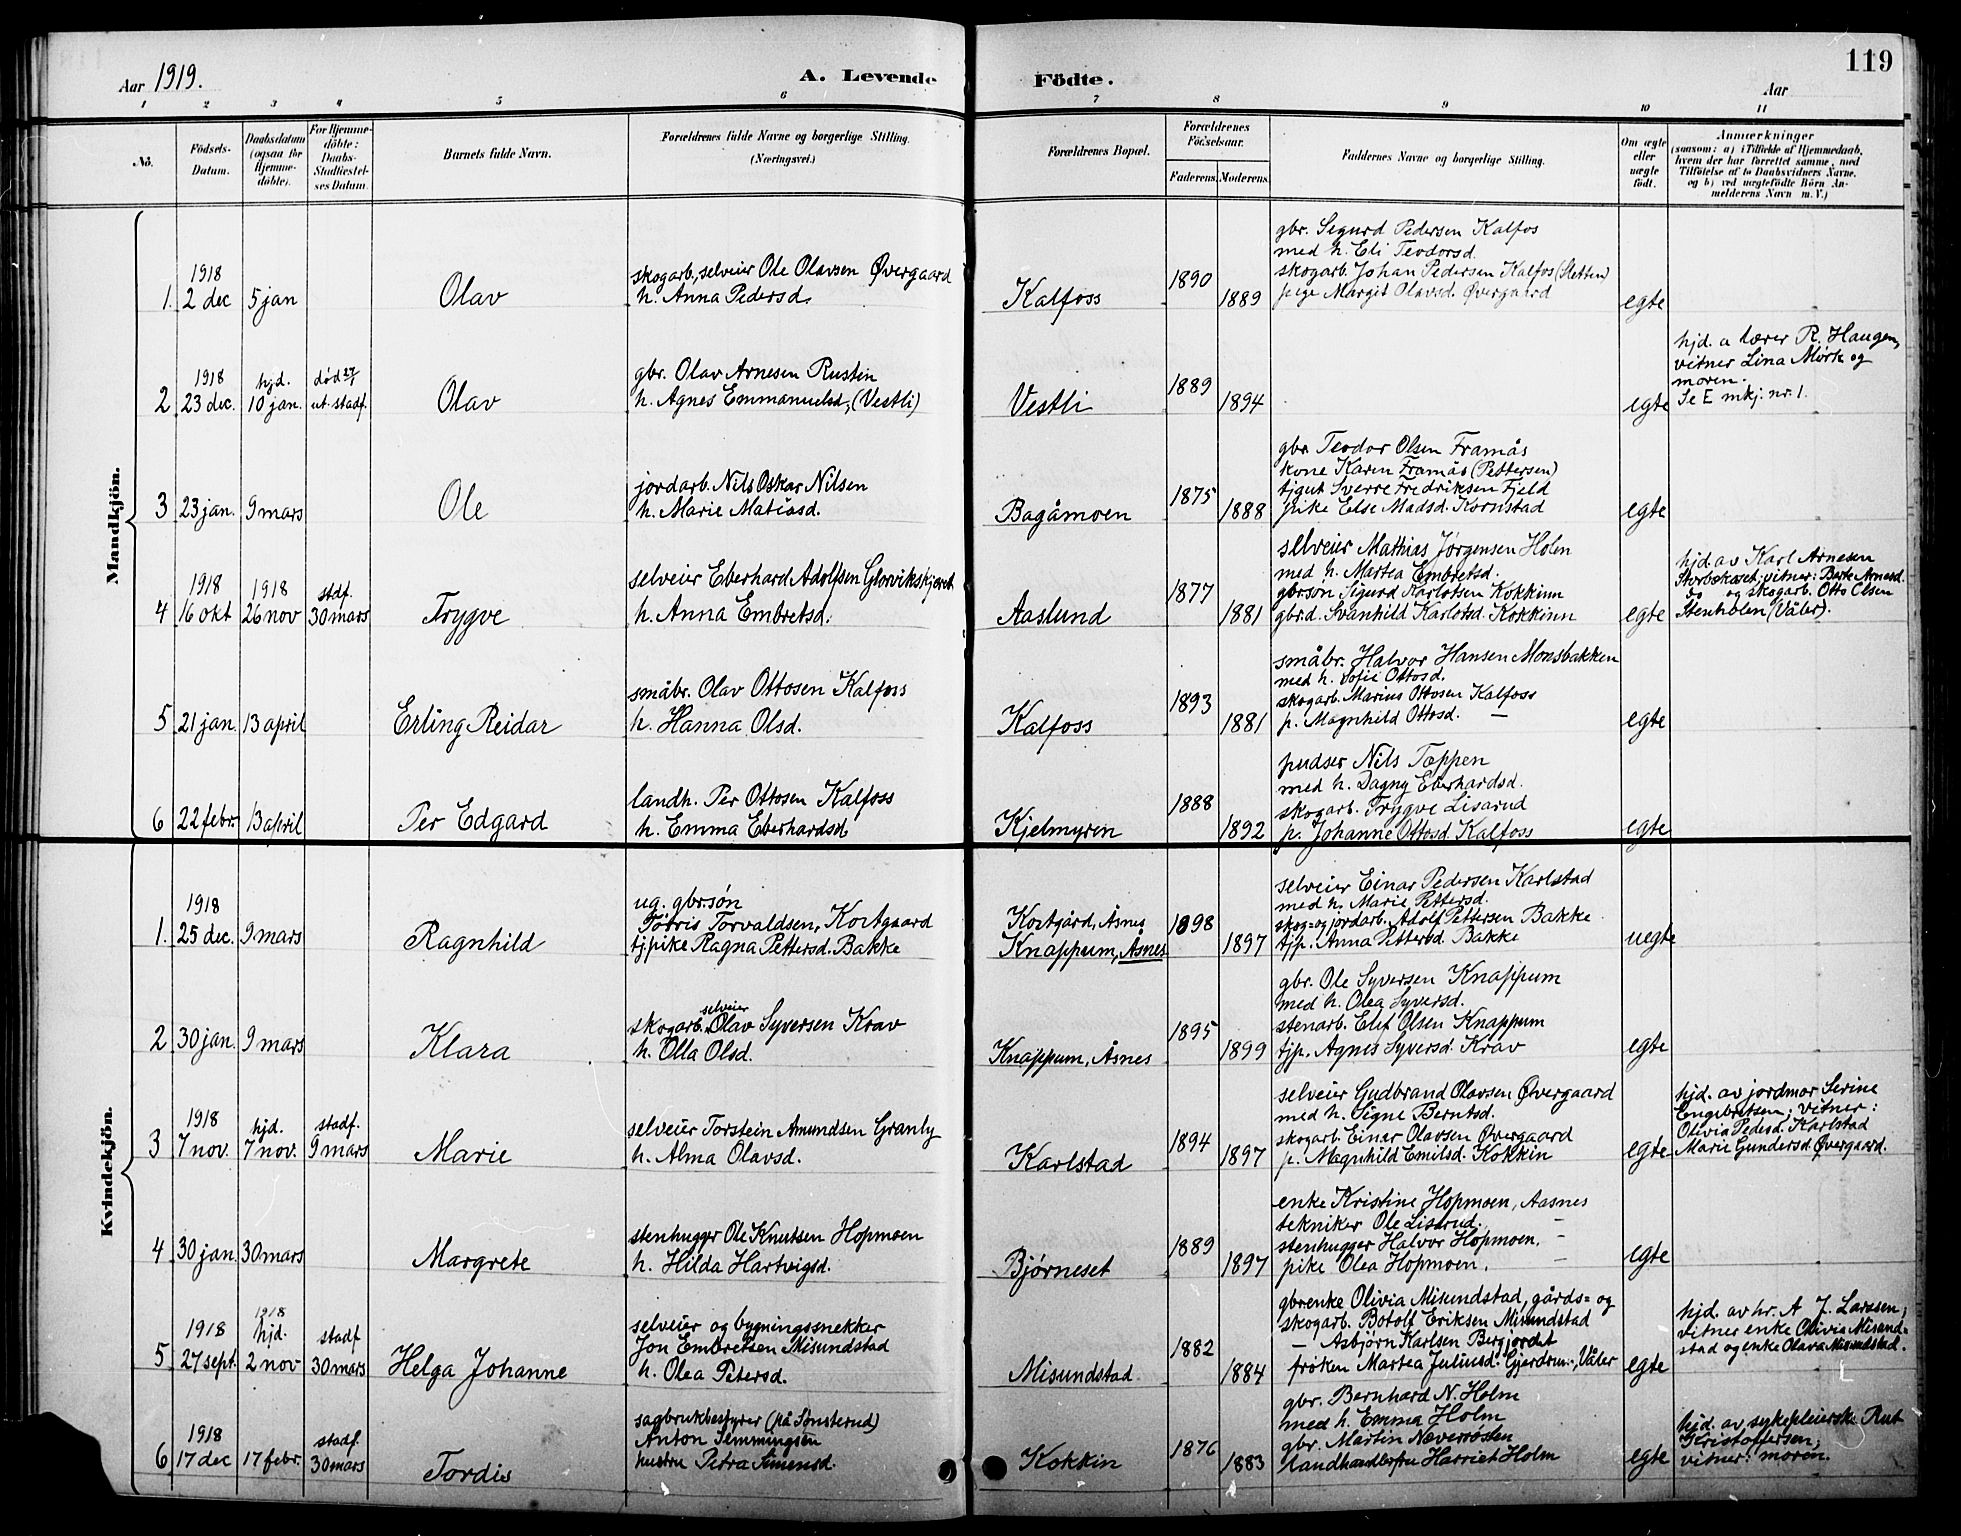 Aar 1919.
A. Levende Födte.
Aar
119
1 2 3 4 5 6 7 8 9 10 11
No.
Födsels-
Datum.
Daabsdatum
(ogsaa for
Hjemme-
döbte).
For Hjemme-
döbte:
Daabs-
Stadfæstel-
ses Datum.
Barnets fulde Navn.
Forældrenes fulde Navne og borgerlige Stilling.
(Næringsvei.)
Forældrenes Bopæl.
Forældrenes
Födselsaar.
Faderens. Moderens.
Faddernes Navne og borgerlige Stilling.
Om ægte
eller
uægte
født.
Anmærkninger
(saasom: a) i Tilfælde af Hjemmedaab,
hvem der har forrettet samme, med
Tilføielse af to Daabsvidners Navne,
og b) ved uægtefödte Börn An-
melderens Navn m. V.)
Mandkjön.
1. 1918
2 dec
5 jan
Olav
skogarb., selveier Ole Olavsen Øvergaard
h. Anna Pedersd.
Kalfoss
1890
1889
gbr. Sigurd Pedersen Kalfos
med h. Eli Teodorsd.
skogarb. Johan Pedersen Kalfos (Sletten)
pige Margit Olavsd. Øvergaard
egte
2 1918
23 dec.
hjd.
10 jan.
død 27/1
ut. stadf.
Olav
gbr. Olav Arnesen Rustin
h. Agnes Emmanuelsd, (Vestli)
Vestli
1889
1894
egte
hjd. a lærer R. Haugen,
vitner Lina Mörk og
moren.
Se E mkj. nr. 1.
3 23 jan.
9 mars
Ole
jordarb. Nils Oskar Nilsen
h. Marie Matiasd.
Bagåmoen
1875
1888
gbr Teodor Olsen Framås
kone Karen Framås (Pettersen)
tjgut Sverre Fredriksen Fjeld
pike Else Madsd. Kornstad
egte
4 1918
16 okt
1918
26 nov
stdf.
30 mars
Trygve
selveier Eberhard Adolfsen Glorvikskjæret
h. Anna Embretsd.
Aaslund
1877
1881
selveier Mathias Jørgensen Holm
med h. Martea Embretsd.
gbrsön Sigurd Karlotsen Kokkinn
gbr.d. Svanhild Karlotsd. Kokkinn
egte
hjd. av Karl Arnesen
vitner: Berte Arnesd.
do og skogarb. Otto Olsen
Stenholen (Våler).
5 21 jan.
13 april
Erling Reidar
småbr. Olav Ottosen Kalfoss
h. Hanna Olsd.
Kalfoss
1893
1881
småbr. Halvor Hansen Monsbakken
med h. Sofie Ottosd.
skogarb. Marius Ottosen Kalfoss
p. Magnhild Ottosd. —
egte
6 22 febr.
13 april
Per Edgard
landh. Per Ottosen Kalfoss
h. Emma Eberhardsd
Kjelmyren
1888
1892
pudser Nils Tappen
med h. Dagny Eberhardsd.
skogarb. Trygve Lisarud
p. Johanne Ottosd Kalfoss
egte
Kvindekjön.
1. 1918
25 dec.
9 mars
Ragnhild
ug. gbrsøn
Torris Torvaldsen, Kortgaard
tjpike Ragna Pettersd. Bakke
Kortgård, Åsnes
Knappum, Åsnes
1898
1897
selveier Einar Pedersen Karlstad
med h. Marie Pettersd.
skog= og jordarb. Adolf Pettersen Bakke
tjp. Anna Pettersd. Bakke
uegte
2 30 jan.
9 mars
Klara
selveier
skogarb. Olav Syversen Krav
h. Olla Olsd.
Knappum, Åsnes
1895
1899
gbr. Ole Syversen Knappum
med h. Olea Syversd.
stenarb. Elef Olsen Knappum
tjp. Agnes Syversd. Krav
egte
3 1918
7 nov.
hjd.
7 nov.
stadf.
9 mars
Marie
selveier Torstein Amundsen Granly
h. Alma Olavsd.
Karlstad
1894
1897
selveier Gudbrand Olavsen Øvergaard
med h. Signe Berntsd.
skogarb. Einar Olavsen Øvergaard
p. Magnhild Emilsd. Kokkin
egte
hjd. av jordmor Serine
Engebretsen; vitner:
Olivia Pedesd. Karlstad
Marie Gundersd. Øvergaard.
4 30 jan.
30 mars
Margrete
stenhugger Ole Knutsen Hopmoen
h. Hilda Hartvigsd.
Bjørneset
1889
1897
enke Kristine Hopmoen, Aasnes
tekniker Ole Lisarud. —
stenhugger Halvor Hopmoen. —
pike Olea Hopmoen. —
egte
5 1918
27 sept.
1918
hjd.
2 nov
stadf
30 mars
Helga Johanne
selveier og bygningssnekker
Jon Embretsen Misundstad
h. Olea Petersd.
Misundstad
1882
1884
gbrenke Olivia Misundstad, gårds= og
skogarb. Botolf Eriksen Misundstad
— Asbjörn Karlsen Bergjordet
frøken Martea Juliusd. Gjerdrum, Våler
egte
hjd. av hr. A J. Larssen,
vitner enke Olivia Misund=
stad og enke Olava Misundstad.
6 1918
17 dec
17 febr.
stadf.
30 mars
Tordis
sagbrukbestyrer (på Sønsterud)
Anton Semmingsen
hustru Petra Simensd.
Kokkin
1876
1883
gbr. Bernhard N. Holm
med h. Emma Holm
gbr. Martin Næveråsten
landhandlerfru Harriet Holm
egte
hjd. av sykepleierske Rut
Kristoffersen;
vitner: moren.